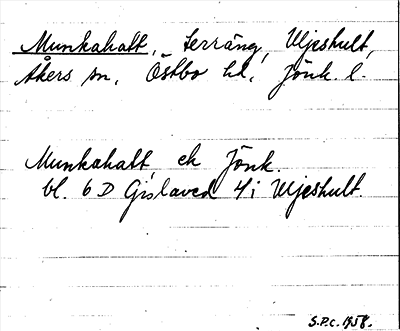 Munkahatt, terräng, Uljeshult,
Åkers sn, Östbo hd, Jönk. l.
Munkahatt, ek Jönk.
bl. 6 D Gislaved 4i Uljeshult.
S.P.C. 1958.